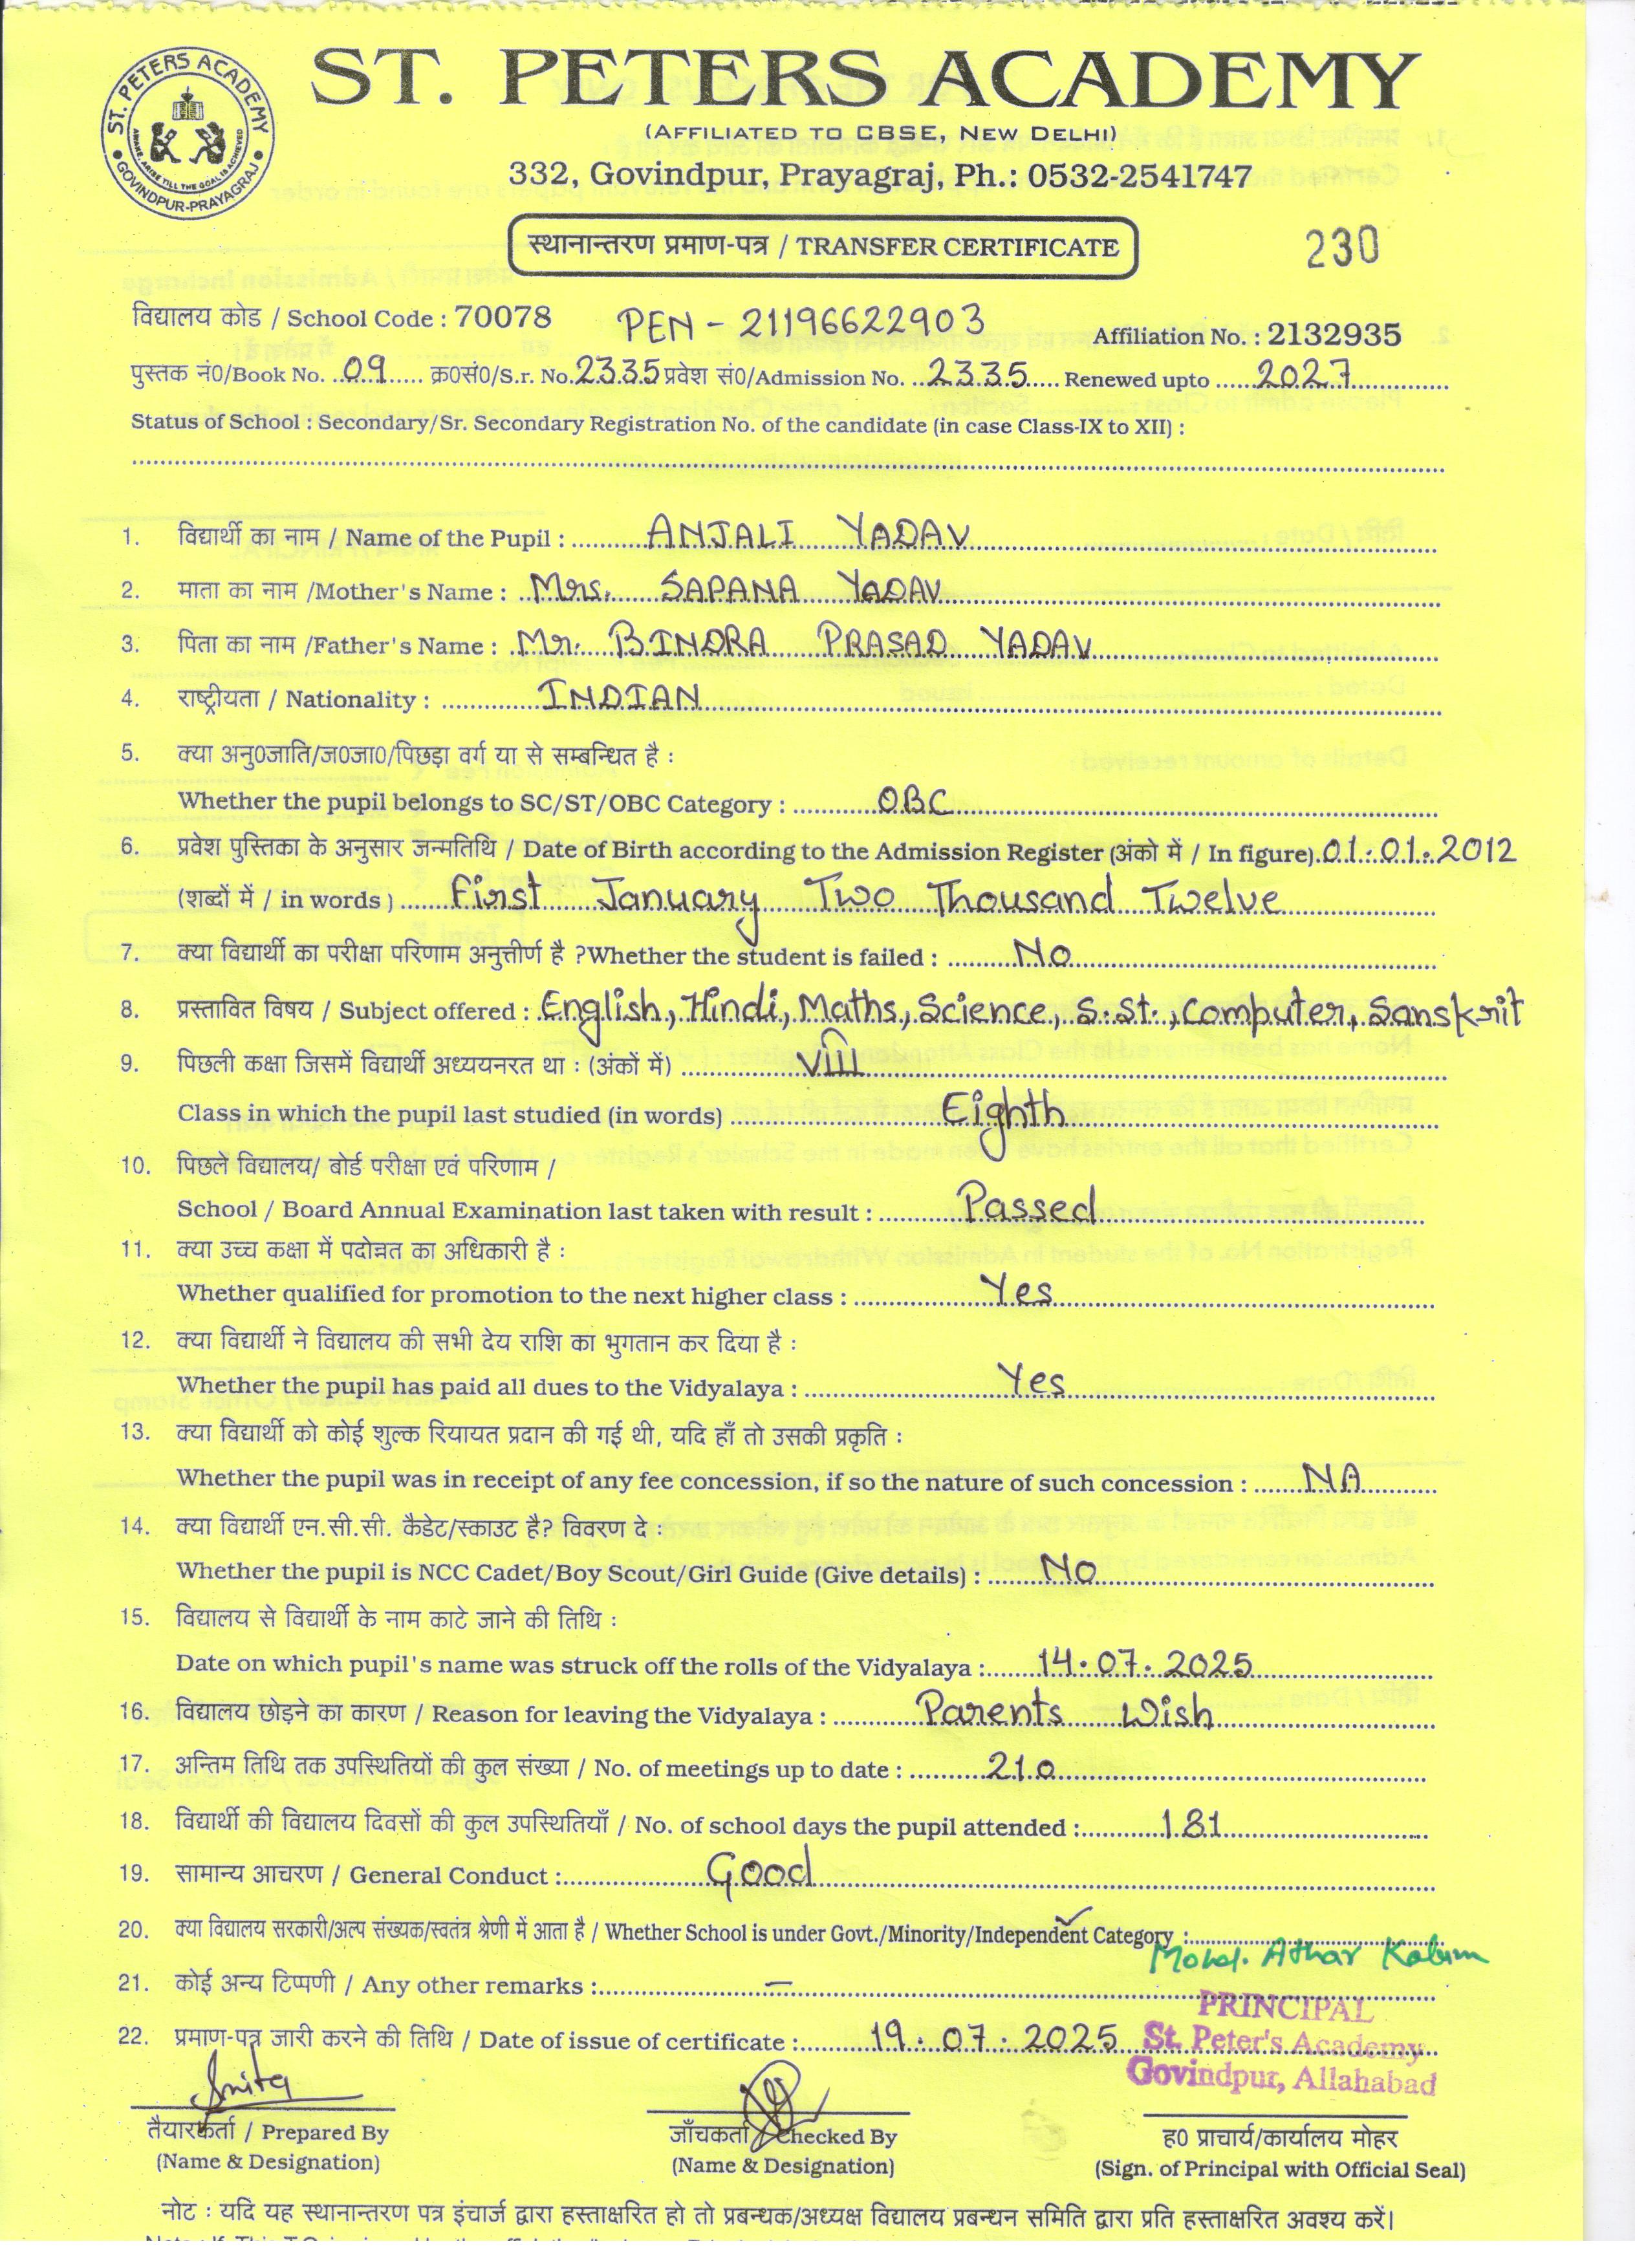 ST. PETERS ACADEMY
ST. PETERS ACADEMY
AWAKE, ARISE TILL THE GOAL IS ACHIEVED
GOVINDPUR-PRAYAGRAJ
(AFFILIATED TO CBSE, NEW DELHI)
332, Govindpur, Prayagraj, Ph.: 0532-2541747
स्थानान्तरण प्रमाण-पत्र / TRANSFER CERTIFICATE
230
विद्यालय कोड / School Code : 70078 PEN - 21196622903 Affiliation No. : 2132935
पुस्तक नं0/Book No. 09 क्र0सं0/S.r. No. 2335 प्रवेश सं0/Admission No. 2335 Renewed upto 2027
Status of School : Secondary/Sr. Secondary Registration No. of the candidate (in case Class-IX to XII) :
1. विद्यार्थी का नाम / Name of the Pupil : ANJALI YADAV
2. माता का नाम /Mother's Name : Mrs. SAPANA YADAV
3. पिता का नाम /Father's Name : Mr. BINDRA PRASAD YADAV
4. राष्ट्रीयता / Nationality : INDIAN
5. क्या अनु0जाति/ज0जा0/पिछड़ा वर्ग या से सम्बन्धित है :
Whether the pupil belongs to SC/ST/OBC Category : OBC
6. प्रवेश पुस्तिका के अनुसार जन्मतिथि / Date of Birth according to the Admission Register (अंको में / In figure) 01.01.2012
(शब्दों में / in words ) First January Two Thousand Twelve
7. क्या विद्यार्थी का परीक्षा परिणाम अनुत्तीर्ण है ?Whether the student is failed : No
8. प्रस्तावित विषय / Subject offered : English, Hindi, Maths, Science, S.St., Computer, Sanskrit
9. पिछली कक्षा जिसमें विद्यार्थी अध्ययनरत था : (अंकों में) VIII
Class in which the pupil last studied (in words) Eighth
10. पिछले विद्यालय/ बोर्ड परीक्षा एवं परिणाम /
School / Board Annual Examination last taken with result : Passed
11. क्या उच्च कक्षा में पदोन्नत का अधिकारी है :
Whether qualified for promotion to the next higher class : Yes
12. क्या विद्यार्थी ने विद्यालय की सभी देय राशि का भुगतान कर दिया है :
Whether the pupil has paid all dues to the Vidyalaya : Yes
13. क्या विद्यार्थी को कोई शुल्क रियायत प्रदान की गई थी, यदि हाँ तो उसकी प्रकृति :
Whether the pupil was in receipt of any fee concession, if so the nature of such concession : NA
14. क्या विद्यार्थी एन.सी.सी. कैडेट/स्काउट है? विवरण दे :
Whether the pupil is NCC Cadet/Boy Scout/Girl Guide (Give details) : No
15. विद्यालय से विद्यार्थी के नाम काटे जाने की तिथि :
Date on which pupil's name was struck off the rolls of the Vidyalaya : 14.07.2025
16. विद्यालय छोड़ने का कारण / Reason for leaving the Vidyalaya : Parents Wish
17. अन्तिम तिथि तक उपस्थितियों की कुल संख्या / No. of meetings up to date : 210
18. विद्यार्थी की विद्यालय दिवसों की कुल उपस्थितियाँ / No. of school days the pupil attended : 181
19. सामान्य आचरण / General Conduct : Good
20. क्या विद्यालय सरकारी/अल्प संख्यक/स्वतंत्र श्रेणी में आता है / Whether School is under Govt./Minority/Independent Category :
Mohd. Athar Kabim
21. कोई अन्य टिप्पणी / Any other remarks : —
PRINCIPAL
22. प्रमाण-पत्र जारी करने की तिथि / Date of issue of certificate : 19.07.2025 St. Peter's Academy
Govindpur, Allahabad
Smita
तैयारकर्ता / Prepared By जाँचकर्ता / Checked By ह0 प्राचार्य/कार्यालय मोहर
(Name & Designation) (Name & Designation) (Sign. of Principal with Official Seal)
नोट : यदि यह स्थानान्तरण पत्र इंचार्ज द्वारा हस्ताक्षरित हो तो प्रबन्धक/अध्यक्ष विद्यालय प्रबन्धन समिति द्वारा प्रति हस्ताक्षरित अवश्य करें।